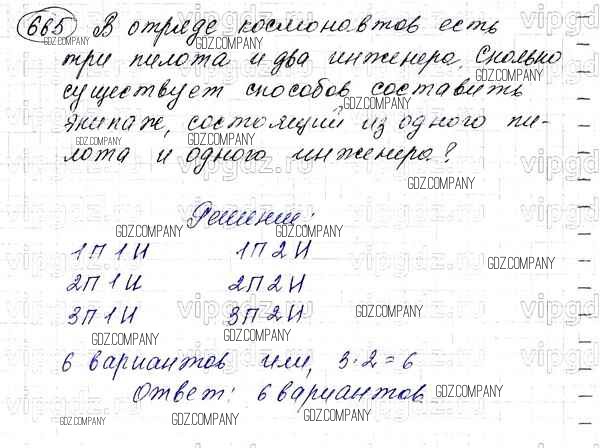 665 В отряде космонавтов есть
три пилота и два инженера. Сколько
существует способов составить
экипаж, состоящий из одного пи-
лота и одного инженера?
Решение:
1П1И 1П2И
2П1И 2П2И
3П1И 3П2И
6 вариантов или, 3·2=6
Ответ: 6 вариантов